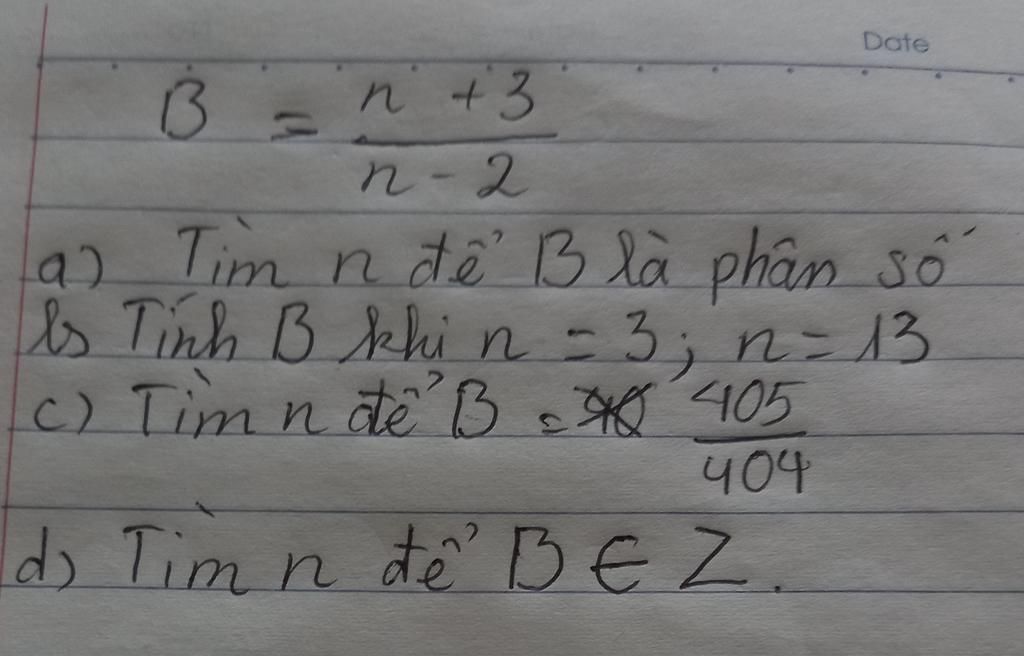 Date
B = \frac{n + 3}{n - 2}
a) Tìm n để B là phân số
b) Tính B khi n = 3; n = 13
c) Tìm n để B = \frac{405}{404}
d) Tìm n để B ∈ Z.